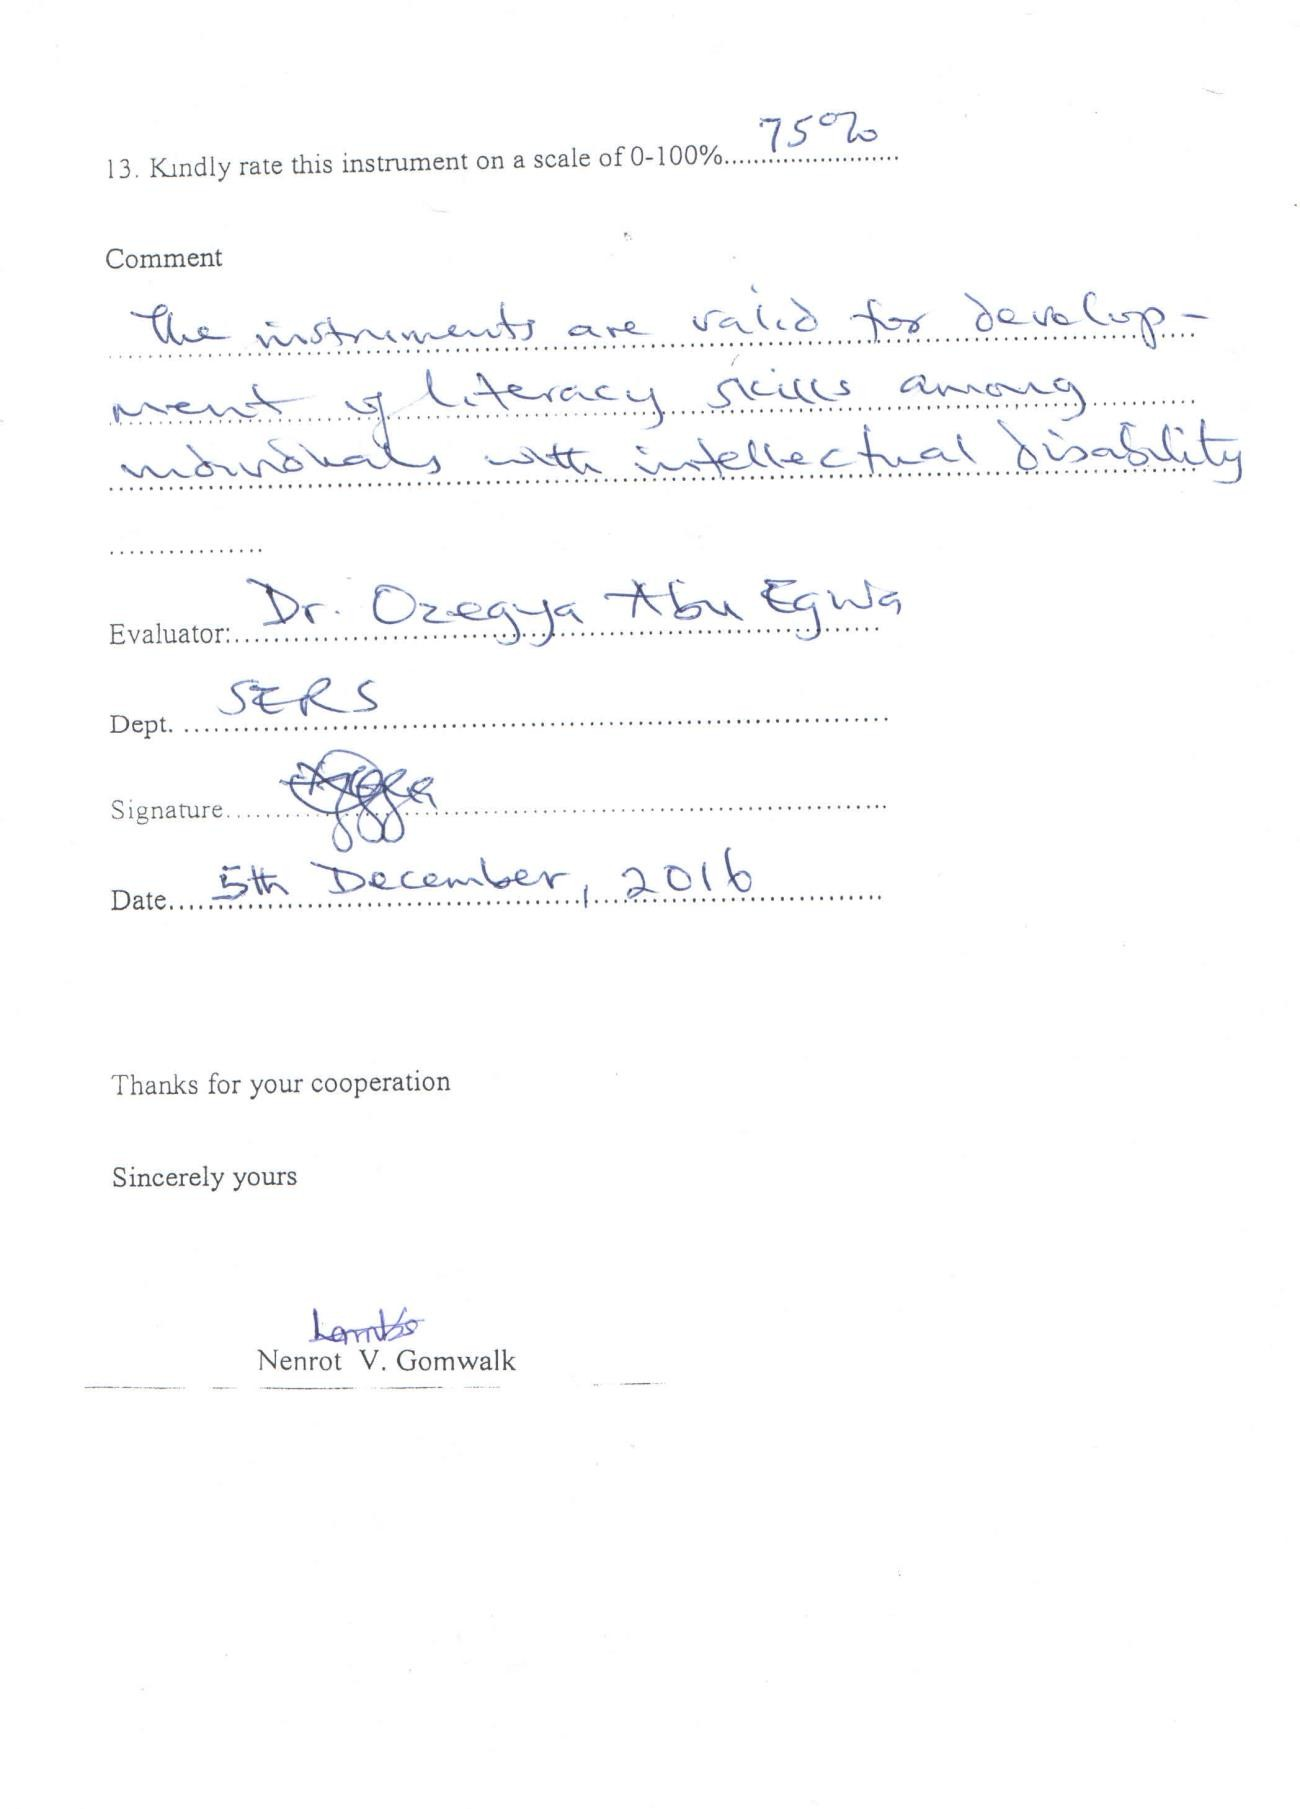 13. Kindly rate this instrument on a scale of 0-100%.......................... 75%
Comment
The instruments are valid for develop-
ment of literacy skills among
individuals with intellectual disability
................
Evaluator: Dr. Ozegya Abu Egwa
Dept. SERS
Signature
Date 5th December, 2016
Thanks for your cooperation
Sincerely yours
Nenrot V. Gomwalk